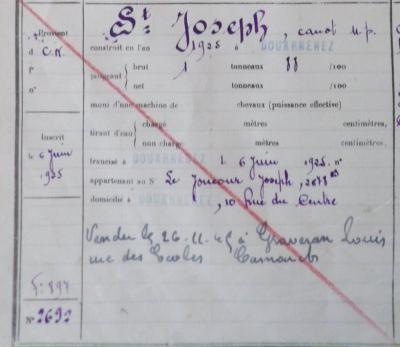 St Joseph, canot m.p.
Provient
d C.N.
construit en l'an 1925 à DOUARNENEZ
fo
jaugeant brut 1 tonneaux 88 /100
no
net tonneaux /100
muni d'une machine de chevaux (puissance effective)
tirant d'eau chargé mètres centimètres,
non chargé mètres centimètres,
Inscrit
le 6 Juin
1925
francisé à DOUARNENEZ l 6 Juin 1925. no
appartenant au Sr Le Joncour Joseph, 2878
domicilié à DOUARNENEZ, 10 Rue du Centre
Vendu le 26-11-45 à Graveran Louis
rue des Ecoles
F: 897
No 2692